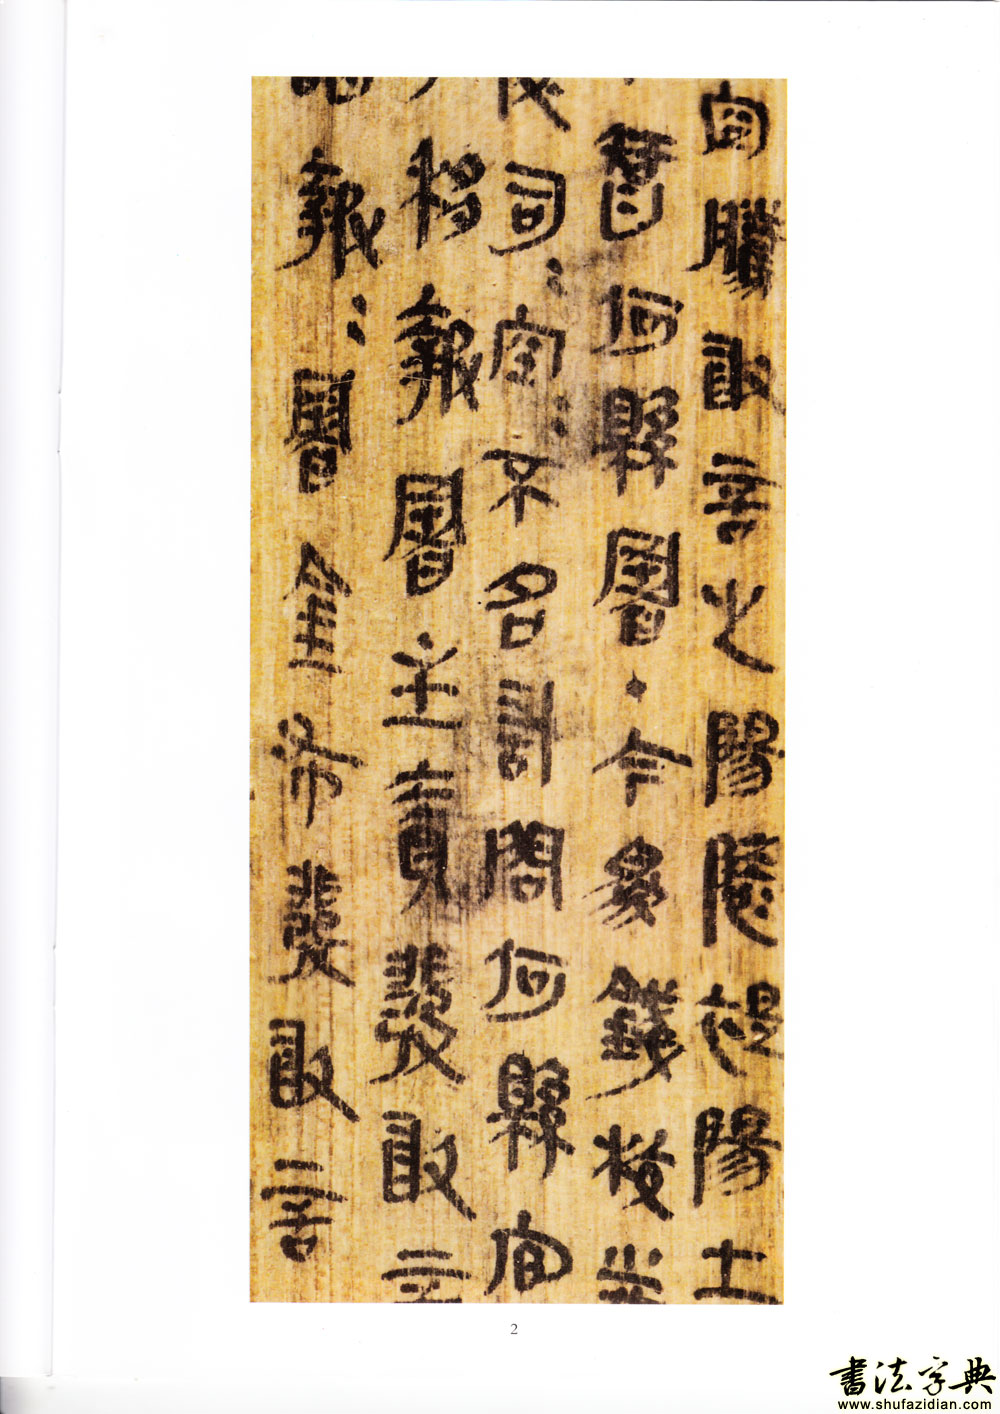 空騰敢言之陽陵禔陽士
智何縣署·今為錢校券
司〻空〻不名計問何縣官
移報署主責發敢言
報〻署金布發敢言
2
書法字典
www.shufazidian.com